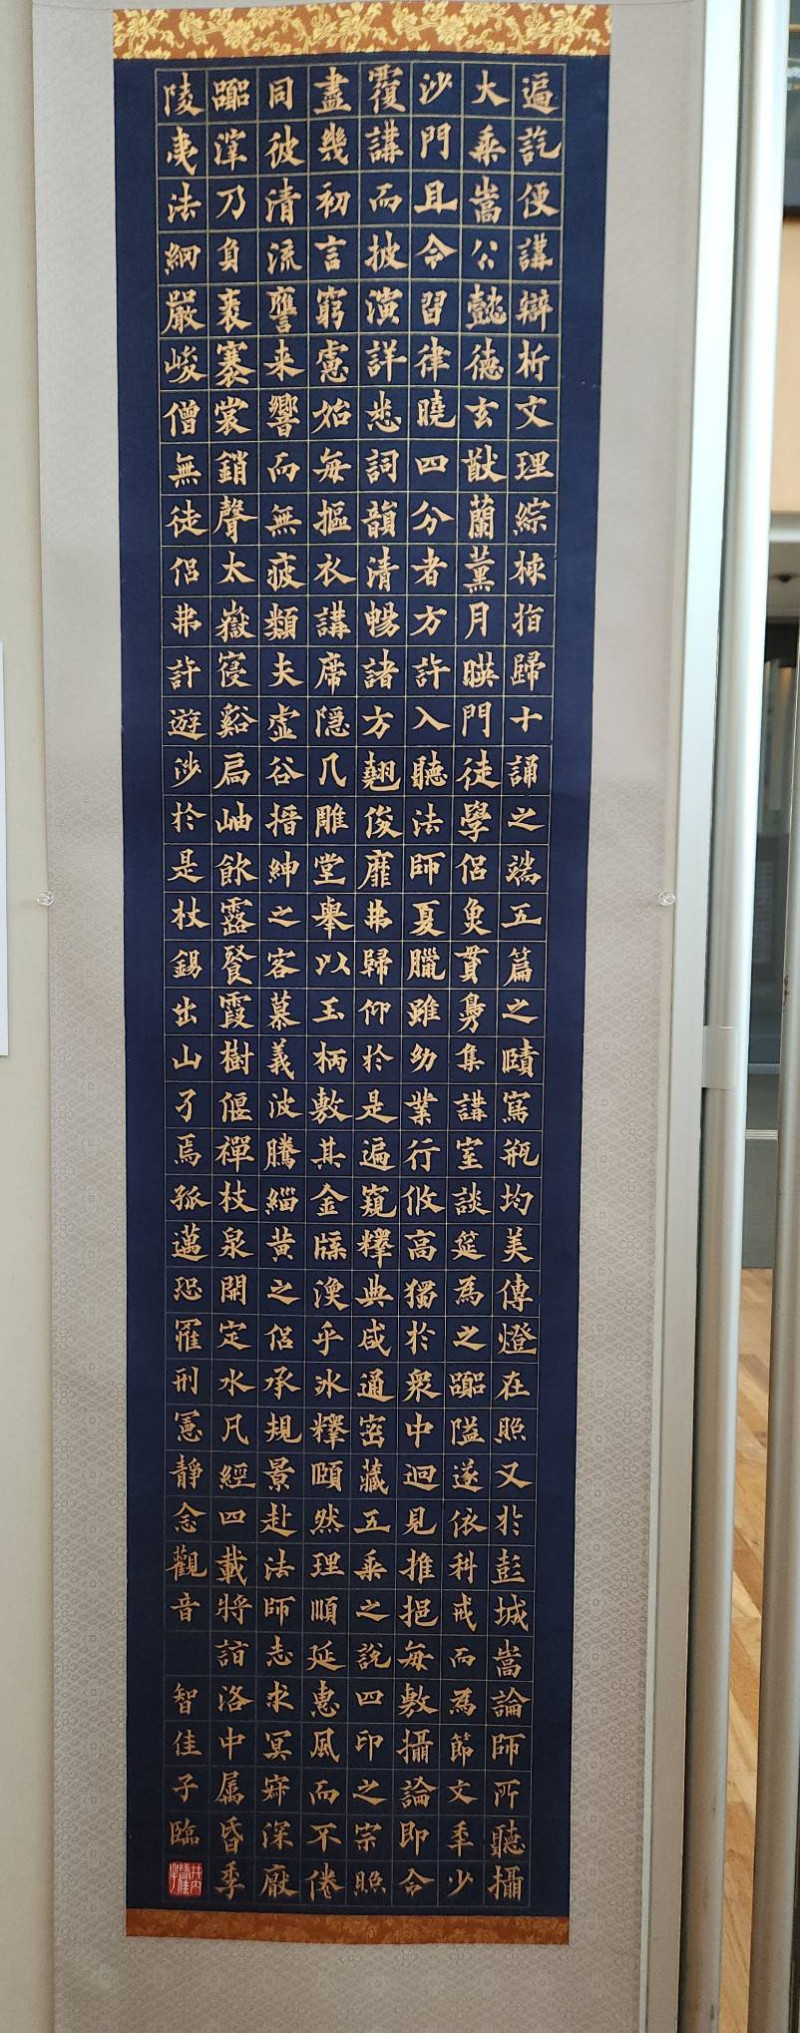 遍訖便講辯析文理綜棶指歸十誦之端五篇之賾寫瓶均美傳燈在照又於彭城嵩論師所聽攝
大乘嵩公懿德玄猷蘭薰月暎門徒學侶魚貫鳧集講室談筵為之嘂隘遂依科戒而為節文年少
沙門且令習律曉四分者方許入聽法師夏臘雖幼業行攸高獨於衆中迥見推挹每敷攝論即令
覆講而披演詳悉詞韻清暢諸方翹俊靡弗歸仰於是遍窺釋典咸通密藏五乘之說四印之宗照
盡幾初言窮慮始每摳衣講席隱几雕堂舉以玉柄敷其金牒渙乎冰釋頤然理順延惠風而不倦
同彼清流讋来響而無疲類夫虛谷搢紳之客慕義波騰緇黃之侶承規景赴法師志求冥寂深厭
嘂滓乃負袠褰裳銷聲太嶽寑谿扃岫飲露餐霞樹偃禪枝泉開定水凡經四載將詣洛中属昏季
陵夷法網嚴峻僧無徒侶弗許遊涉於是杖錫出山孑焉孤邁恐罹刑憲靜念觀音 智佳子臨